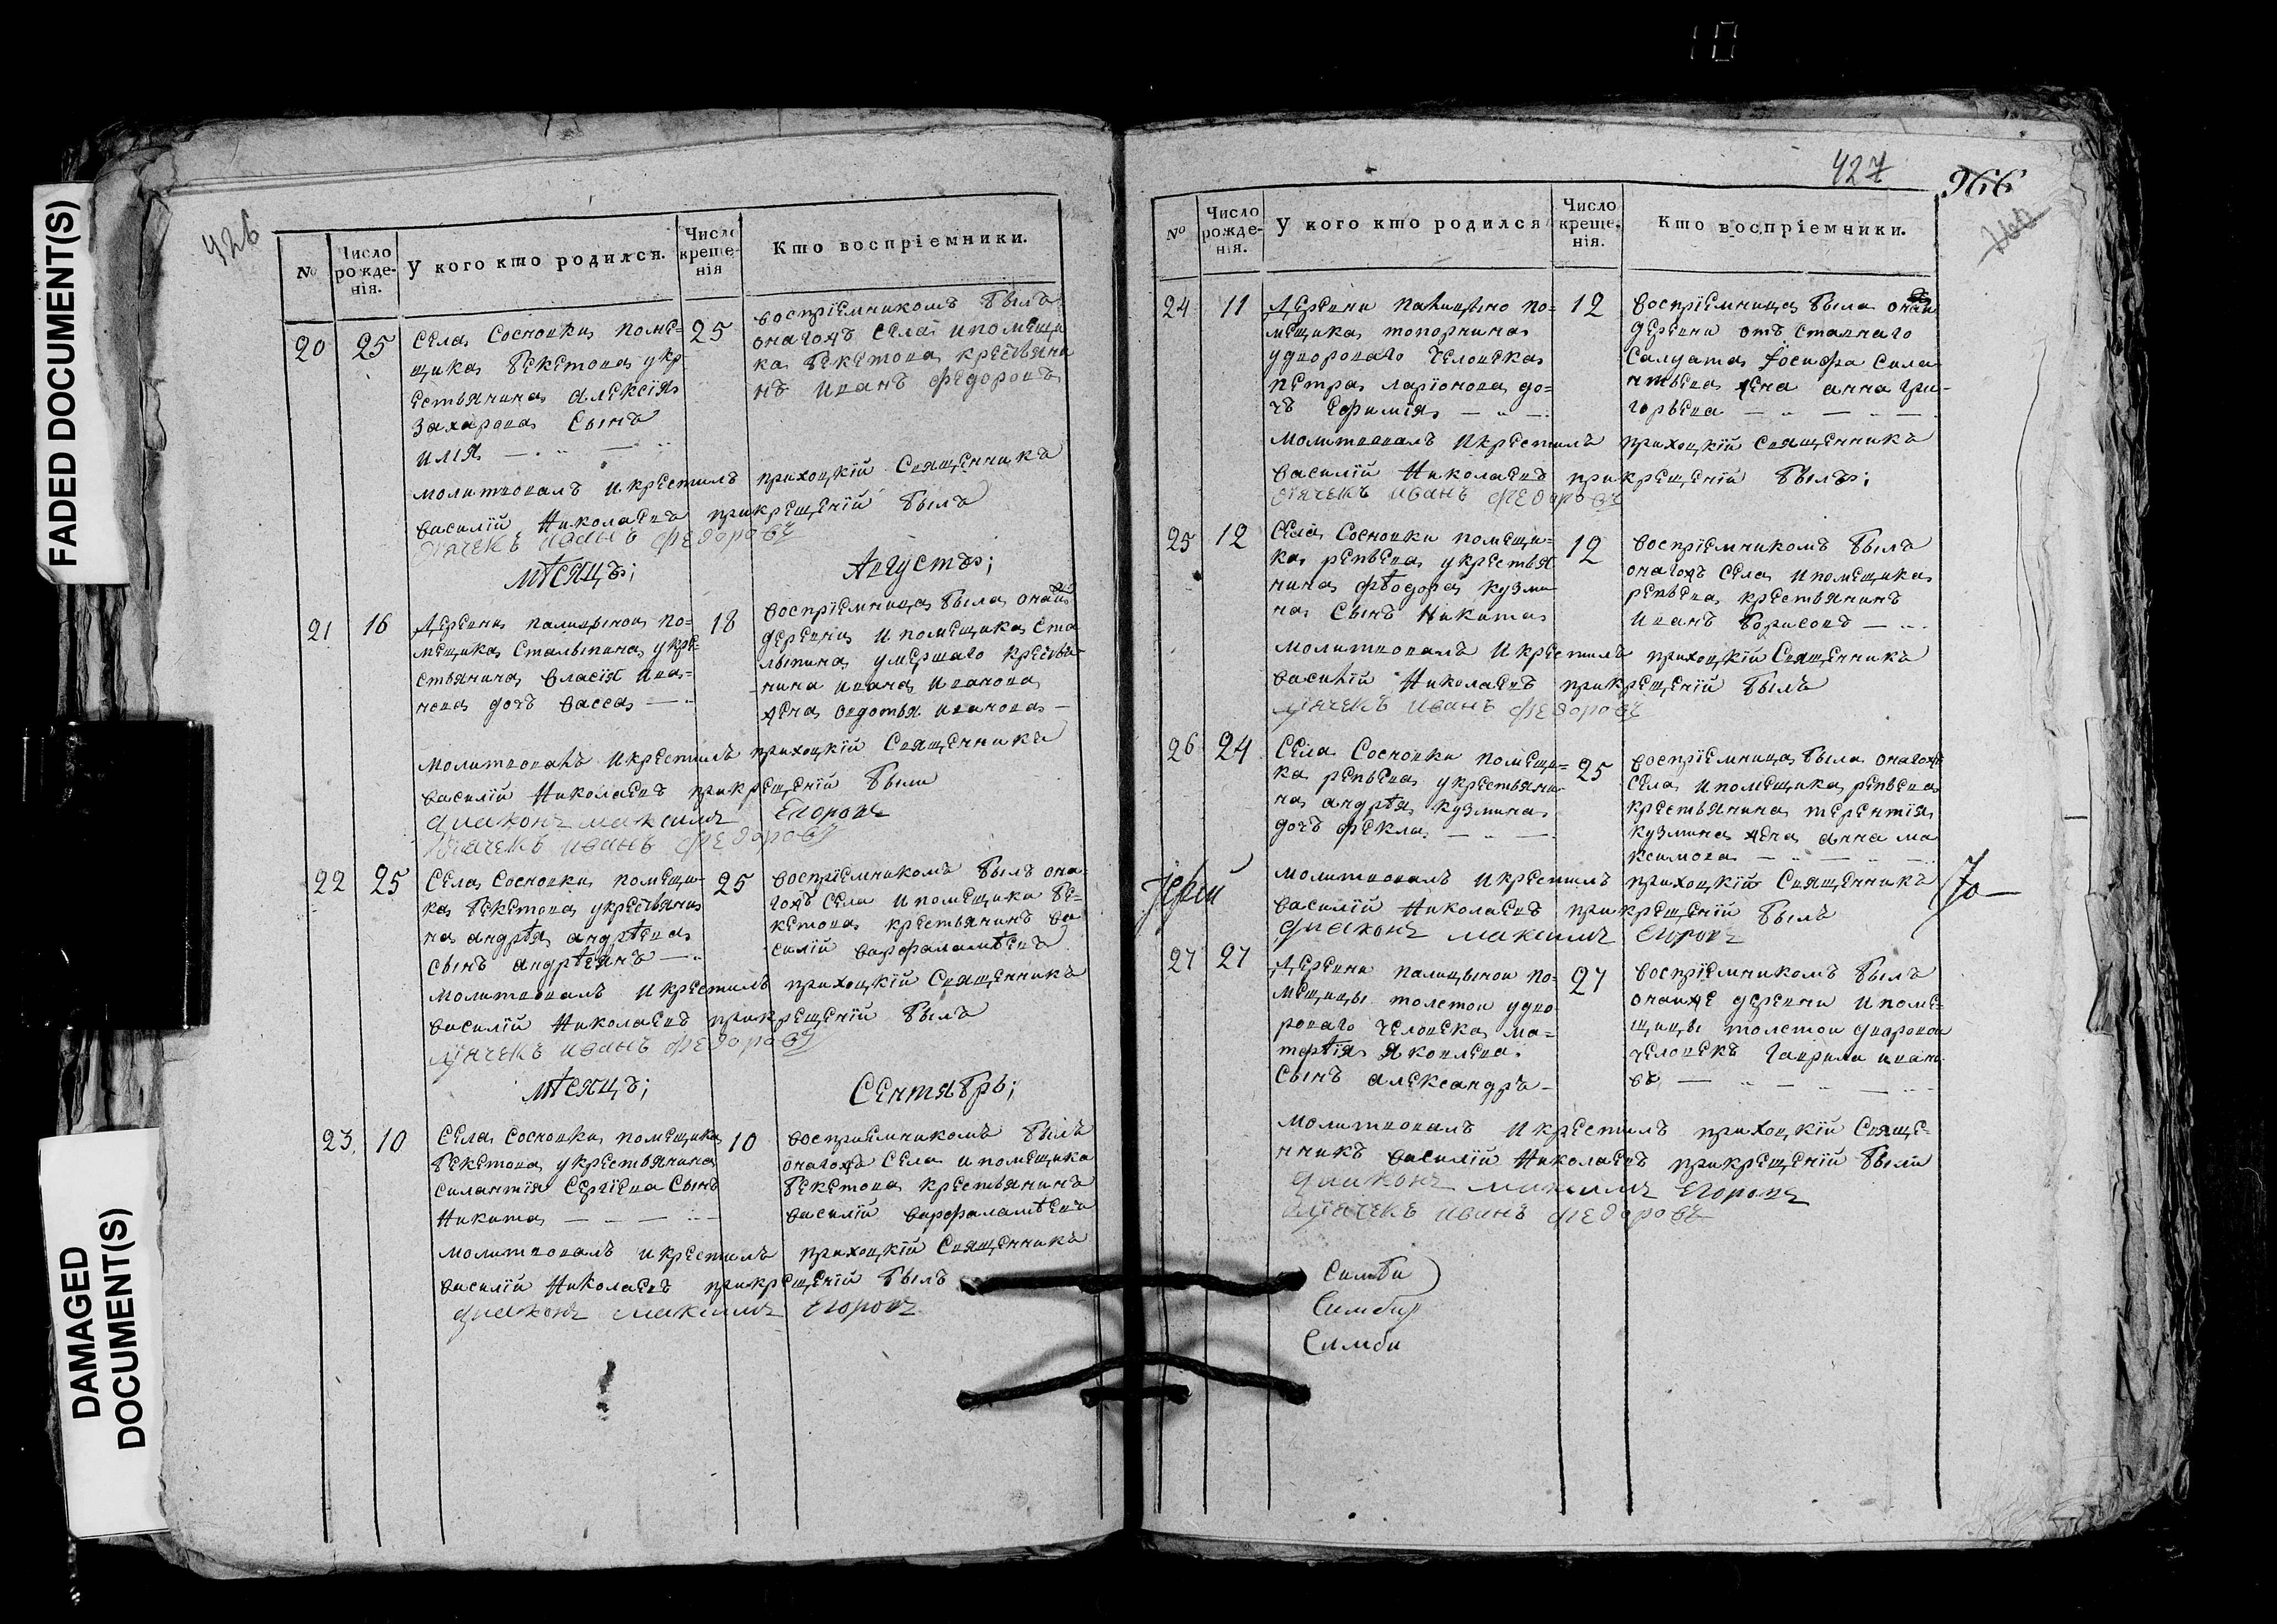 10
FADED DOCUMENT(S)
DAMAGED
DOCUMENT(S)
426
№
Число рожде-нія.
У кого кто родился.
Число креще-нія
Кто воспріемники.
20
25
Села Сосновки поме-
щика Бекетова укр-
естьянина алексія
Захарова Сынъ
илія
25
воспріемникомъ былъ
онагожъ села ипомещи
ка бекетова крестьяни
нъ иванъ федоровъ
молитвовалъ икрестилъ приходкій Священникъ
василій Николаевъ прикрещеній былъ
дячекъ иванъ федоровъ
Мѣсяцъ;
Августъ;
21
16
Деревни палицыной по-
мещика Сталыпина укре-
стьянина власія ива-
нова дочь васса
18
воспріемница была онай
деревни ипомещика ста
лыпина умершаго крестья-
-нина ивана иванова
жена овдотья иванова
молитвовалъ икрестилъ приходкій Священникъ
василій Николаевъ прикрещеній были
диаконъ максимъ Егоровъ
дячекъ иванъ федоровъ
22
25
Села Сосновки помещи-
ка бекетова укрестьяни
на андрѣя андрѣева
сынъ андрѣянъ
25
воспріемникомъ былъ она
гожъ села ипомещика бе-
кетова крестьянинъ ва
силій варфаламѣевъ
молитвовалъ икрестилъ приходкій Священникъ
василій Николаевъ прикрещеній былъ
дячекъ иванъ федоровъ
Мѣсяцъ;
Сентябрь;
23.
10
Села Сосновки помещика
бекетова укрестьянина
силантія Сергіева Сынъ
Никита
10
воспріемникомъ былъ
онагожъ села ипомещика
бекетова крестьянинъ
василій варфаламѣевъ
молитвовалъ икрестилъ приходкій Священникъ
василій Николаевъ прикрещеній былъ
диаконъ максимъ Егоровъ
427
966
№
Число рожде-нія.
У кого кто родился
Число креще-нія.
Кто воспріемники.
24
11
Деревни палицыно по-
мещика топорнина
удвороваго человека
петра ларіонова до-
чь ефимія
12
воспріемница была онай
деревни отъ ставнаго
салдата Іосифа сила
нтьева жена анна гри-
горьева
молитвовалъ икрестилъ приходкій Священникъ
василій Николаевъ прикрещеній былъ;
дячекъ иванъ федоровъ
25
12
Села Сосновки помещи-
ка репьева укрестья
нина фѣодора кузми
на сынъ Никита
12
воспріемникомъ былъ
онагожъ села ипомещика
репьева крестьянинъ
иванъ борисовъ
молитвовалъ икрестилъ приходкій Священникъ
василій Николаевъ прикрещеній былъ
дячекъ иванъ федоровъ
26
24
Села Сосновки помещи-
ка репьева укрестьяни
на андрѣя кузмина
дочь фекла
25
воспріемница была онагожъ
села ипомещика репьева
крестьянина терентія
кузмина жена анна ма
ксимова
Іерей
молитвовалъ икрестилъ приходкій Священникъ
василій Николаевъ прикрещеній былъ
диаконъ максимъ Егоровъ
27
27
Деревни палицыной по-
мещицы толстой удво
роваго человека ма-
тофѣія яковлева
сынъ александръ
27
воспріемникомъ былъ
онаиже деревни ипоме-
щицы толстой дворовой
человекъ гаврила ивано
въ
молитвовалъ икрестилъ приходкій Свяще-
нникъ василій Николаевъ прикрещеній были
диаконъ максимъ Егоровъ
дячекъ иванъ федоровъ
Симби
Симбир
Симби